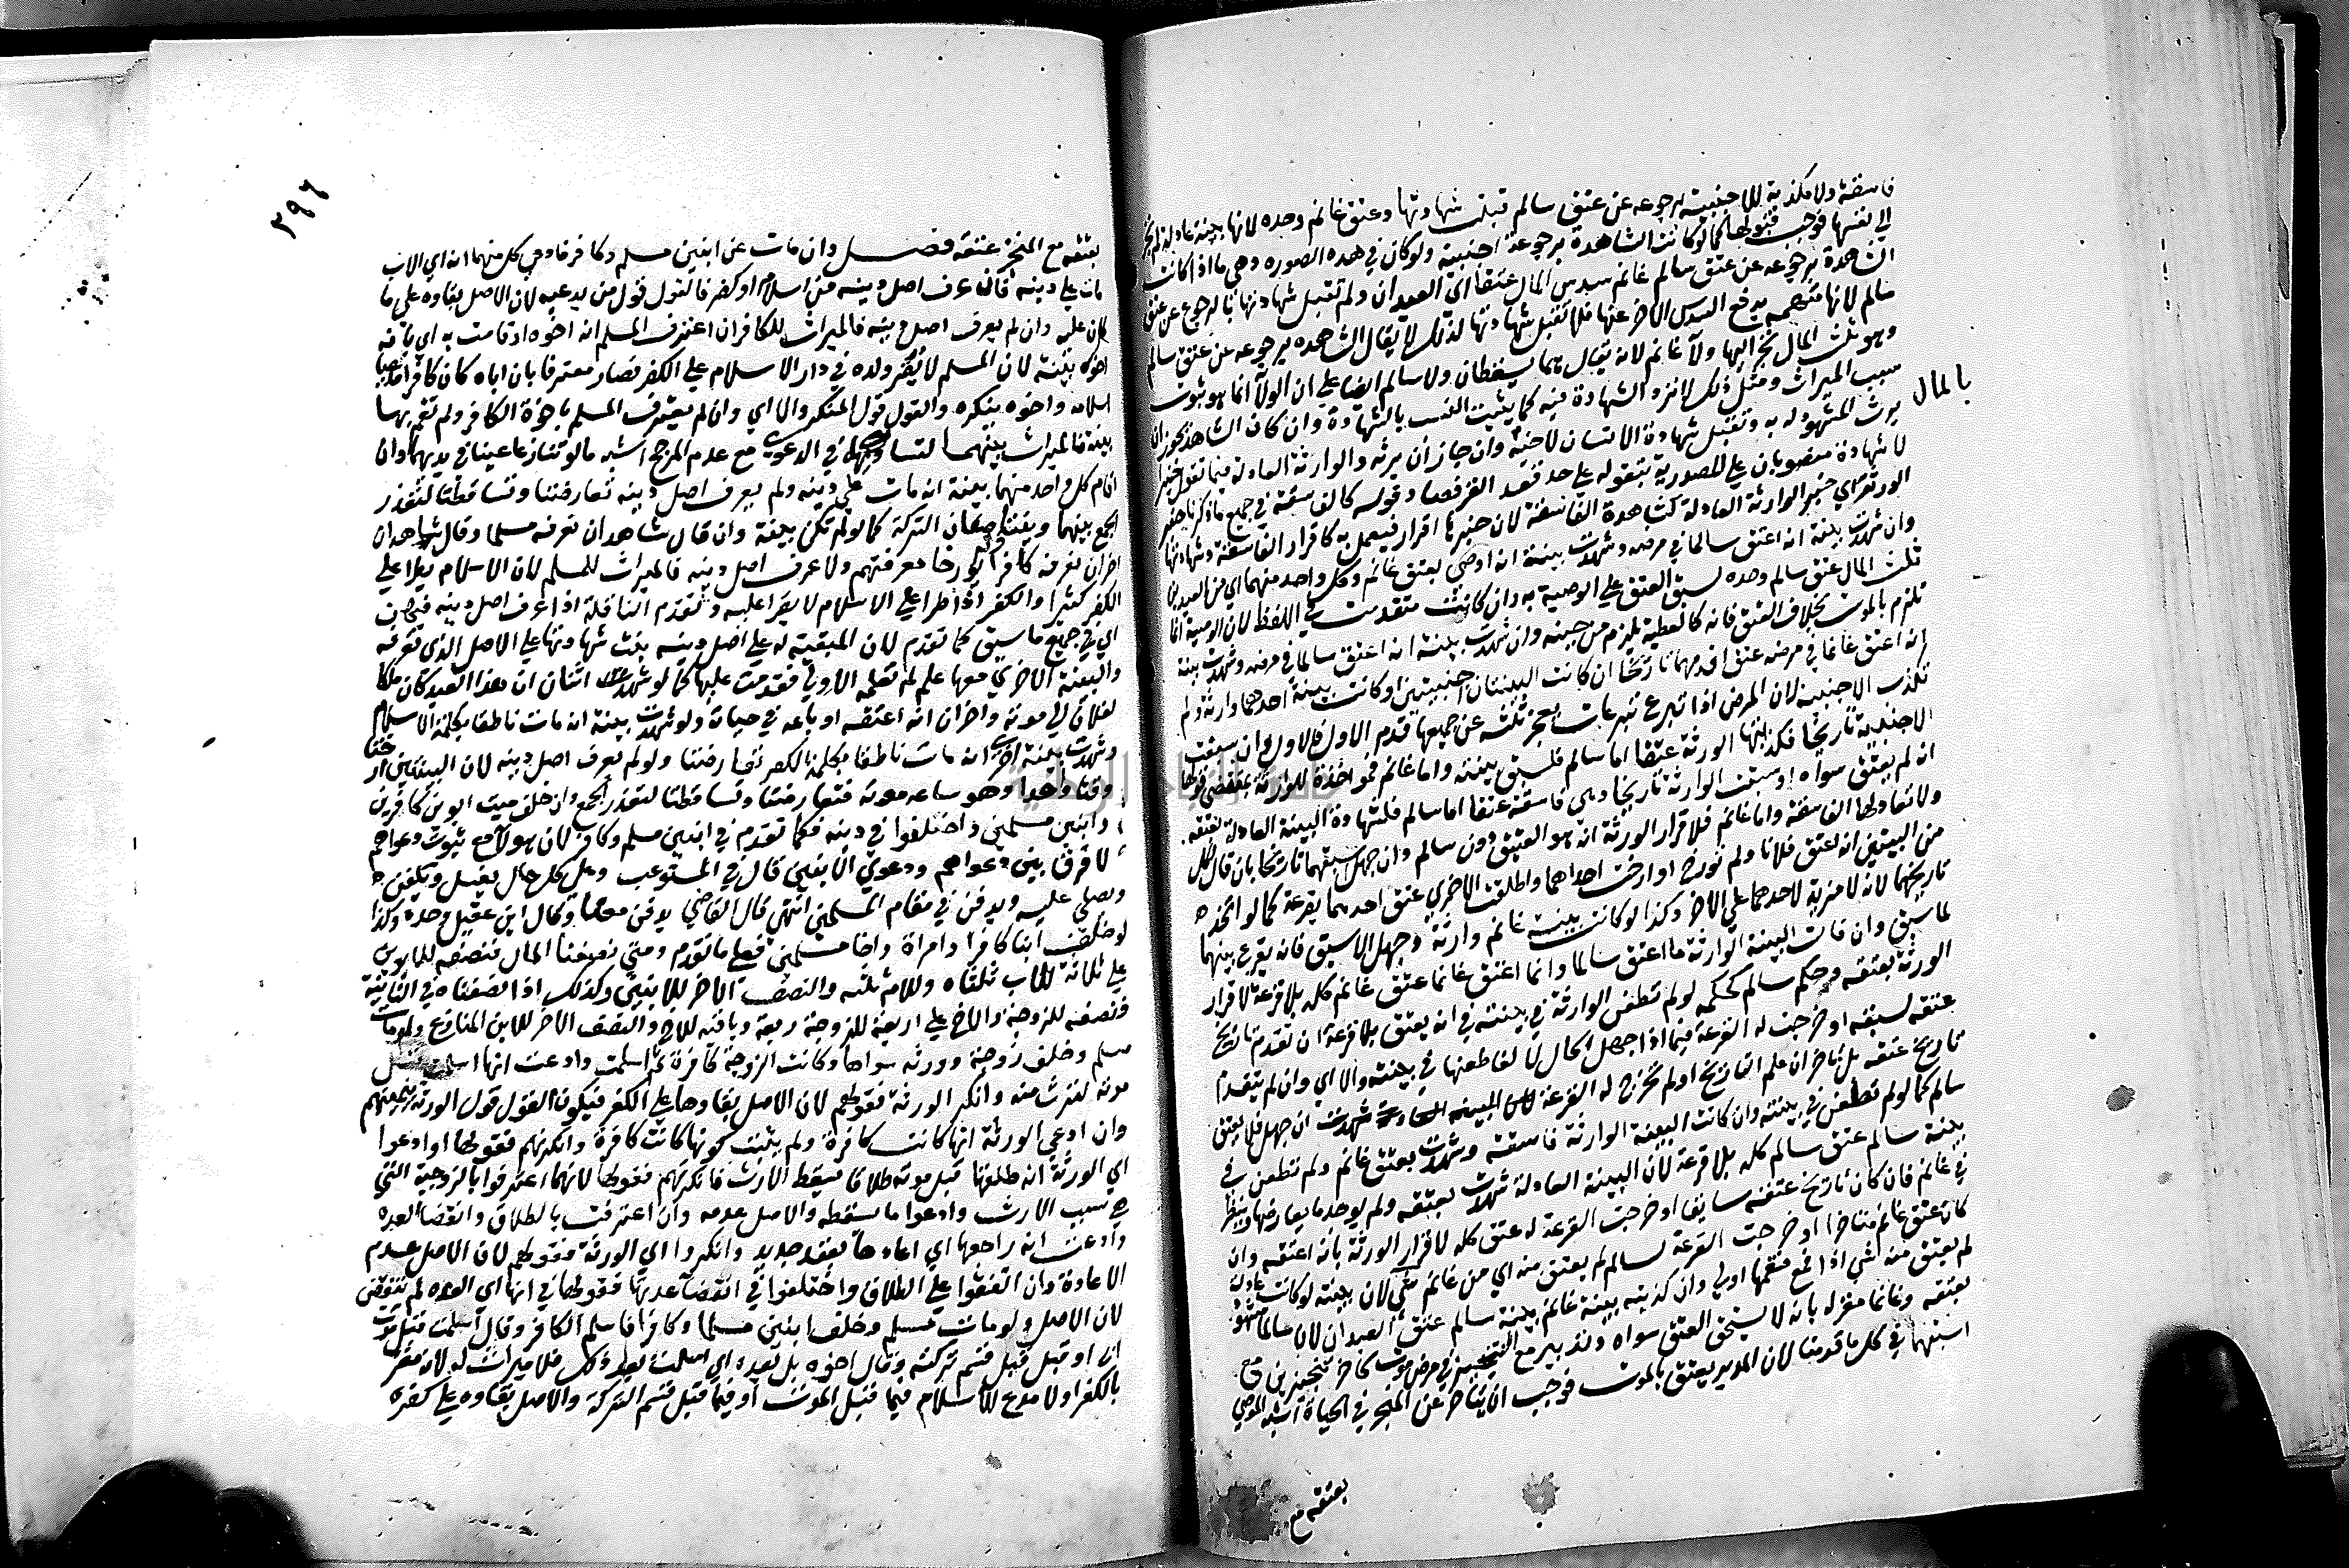 فاسقة ولا مكذبة للاجنبية برجوعه عن عتق سالم قبلت شهادتها وعتق غانم وحده لانها بينة عادلة لم تجر
الي نفسها فوجب قبولها كما لو كانت الشاهدة برجوعه اجنبية ولو كان في هذه الصورة وهي ما اذا كانت
الشاهدة برجوعه عن عتق سالم غانم سدس المال عتقا اي العبدان ولم تقبل شهادتها بالرجوع عن عتق
سالم لانها متهمة بدفع السدس الاخر عنها فلا تقبل شهادتها لذلك لا يقال الشاهدة برجوعه عن عتق سالم
وهو ثلث المال تجر اليها ولا غانم لانه يقال هما يسقطان ولا سالم ايضا علي ان الولا انما هو ثبوت
سبب الميراث ومثل ذلك لا ترد الشهادة فيه كما يثبت النسب بالشهادة وان كان الشاهد يجوز ان
يرث المشهود له به وتقبل شهادة الانسان لاخيه بالمال وان جاز ان يرثه والوارثة العادلة فيما تقول خبرا
لا شهادة منصوبان علي المصدرية بتقوله علي حد قعد القرفصا وقوله كالفاسقة في جميع ما ذكرنا خبر
الوارثة اي خبر الوارثة العادلة كشاهدة الفاسقة لان خبرها اقرار فيعمل به كاقرار الفاسقة وشهادتها
وان شهدت بينة انه اعتق سالما في مرضه وشهدت بينة انه اوصى بعتق غانم وكل واحد منهما اي من العبدين
ثلث المال عتق سالم وحده لسبق العتق علي الوصية به وان كانت متقدمة في اللفظ لان الوصية انما
تلزم بالموت بخلاف العتق فانه كالعطية يلزم من حينه وان شهدت بينة انه اعتق سالما في مرضه وشهدت بينة
انه اعتق غانما في مرضه عتق اقدمهما تاريخا ان كانت البينتان اجنبيتين او كانت بينة احدهما وارثة ولم
تكذب الاجنبية لان المرض اذا تبرع تبرعات يعجز ثلثه عن جميعها قدم الاول فالاول وان سبقت
الاجنبية تاريخا فكذبتها الورثة عتقا اما سالم فلسبق بينته واما غانم فمواخذة للورثة بمقتضى قولها
انه لم يعتق سواه او سبقت الوارثة تاريخا وهي فاسقة عتقا اما سالم فلشهادة البينة العادلة بعتقه
ولا تعادلها الفاسقة واما غانم فلاقرار الورثة انه هو العتيق دون سالم وان جهل سبقهما تاريخا بان قال كل
من البينتين انه اعتق فلانا ولم تورخ او ارخت احداهما واطلقت الاخرى عتق احدهما بقرعة كما لو اتحد
تاريخهما لانه لا مزية لاحدهما علي الاخر وكذا لو كانت بينة غانم وارثة وجهل الاسبق فانه يقرع بينهما
لما سبق وان قالت البينة الوارثة ما اعتق سالما وانما اعتق غانما عتق غانم كله بلا قرعة لاقرار
الورثة بعتقه وحكم سالم كحكمه لو لم تطعن الوارثة في بينته في انه يعتق بلا قرعة ان تقدم تاريخ
عتقه لسبقه او خرجت له القرعة فيما اذا جهل الحال لا لغا طعنها في بينته والا اي وان لم يتقدم
تاريخ عتقه بل تاخر ان علم التاريخ او لم تخرج له القرعة ان جهل فلا يعتق
سالم كما لو لم تطعن في بينته وان كانت البينة الوارثة فاسقة وشهدت بعتق غانم ولم تطعن في
بينة سالم عتق سالم كله بلا قرعة لان البينة العادلة شهدت بعتقه ولم يوجد ما يعارضها وينظر
في غانم فان كان تاريخ عتقه سابقا او خرجت القرعة له عتق كله لاقرار الورثة بانه اعتقه وان
كان عتق غانم متاخرا او خرجت القرعة لسالم لم يعتق منه اي من غانم شي لان بينته لو كانت عادلة
لم يعتق منه شي اذا فمع فسقها اولى وان كذبت بينة غانم بينة سالم عتق العبدان لان سالما مشهود
بعتقه وغانما مقر له بانه لا يستحق العتق سواه وتدبير مع التنجيز في مرض موت كاخر تنجيزين مع
اسبقهما في كل ما قدمنا لان المدبر يعتق بالموت فوجب ان يتاخر عن المنجز في الحياة اشبه الموصي
بعتقه مع
٢٩٦
بعتقه مع المنجز عتقه فصل وان مات عن ابنين مسلم وكافر فادعى كل منهما انه اي الاب
مات علي دينه فان عرف اصل دينه من اسلام او كفر فالقول قول من يدعيه لان الاصل بقاوه علي ما
كان عليه وان لم يعرف اصل دينه فالميراث للكافر ان اعترف المسلم انه اخوه او قامت به اي بانه
اخوه بينة لان المسلم لا يقر ولده في دار الاسلام علي الكفر فصار معترفا بان اباه كان كافرا مدعيا
اسلامه واخوه ينكره والقول قول المنكر والا اي وان لم يعترف المسلم باخوة الكافر ولم تقم بها
بينة فالميراث بينهما لتساويهما في الدعوى مع عدم المرجح اشبه ما لو تنازعا عينا في يديهما وان
اقام كل واحد منهما بينة انه مات علي دينه ولم يعرف اصل دينه تعارضتا وتساقطتا لتعذر
الجمع بينهما ويقتسمان التركة كما لو لم تكن بينة وان قال شاهدان نعرفه مسلما وقال شاهدان
اخران نعرفه كافرا ولم يورخا معرفتهم ولا عرف اصل دينه فالميراث للمسلم لان الاسلام يطرا علي
الكفر كثيرا والكفر اذا طرا علي الاسلام لا يقر عليه وتقدم الناقلة اذا عرف اصل دينه فيهن
اي في جميع ما سبق كما تقدم لان المبقية له علي اصل دينه بنت شهادتها علي الاصل الذي تعرفه
والبينة الاخرى معها علم لم تعلمه الاولى فقدمت عليها كما لو شهد اثنان ان هذا العبد كان ملكا
لفلان الي موته واخران انه اعتقه او باعه في حياته ولو شهدت بينة انه مات ناطقا بكلمة الاسلام
وشهدت بينة اخرى انه مات ناطقا بكلمة الكفر تعارضتا ولو لم يعرف اصل دينه لان البينتين ارختا
وقتا واحدا وهو ساعة موته فتعارضتا وتساقطتا لتعذر الجمع وان خلف ميت ابوين كافرين
وابنين مسلمين واختلفوا في دينه فكما تقدم في ابنين مسلم وكافر لان هولا مع ثبوت دعواهم
لا فرق بين دعواهم ودعوى الابنين قال في المستوعب وعلى كل حال يغسل ويكفن
ويصلى عليه ويدفن في مقام المسلمين انتهى قال القاضي يدفن معنا وقال ابن عقيل وحده وكذا
لو خلف ابنا كافرا وامراة واخا مسلمين فعلى ما تقدم ومتى نصفنا المال فنصفه للابوين
علي ثلاثة للاب ثلثاه وللام ثلثه والنصف الاخر للابنين وكذلك اذا نصفناه في الثانية
فنصفه للزوجة والاخ علي اربعة للزوجة ربعه وباقيه للاخ والنصف الاخر للابن المنازع ولو مات
مسلم وخلف زوجة وورثه سواها وكانت الزوجة كافرة ثم اسلمت وادعت انها اسلمت قبل
موته لترث منه وانكر الورثة فقولهم لان الاصل بقاوها علي الكفر فيكون القول قول الورثة
وان ادعى الورثة انها كانت كافرة ولم يثبت كونها كانت كافرة وانكرتهم فقولها او ادعوا
اي الورثة انه طلقها قبل موته طلاقا يسقط الارث فانكرتهم فقولها لانهما اعترفوا بالزوجية التي
هي سبب الارث وادعوا ما يسقطه والاصل عدمه وان اعترفت بالطلاق وانقضا العدة
وادعت انه راجعها اي اعادها بعقد جديد وانكروا اي الورثة فقولهم لان الاصل عدم
الاعادة وان اتفقوا علي الطلاق واختلفوا في انقضا عدتها فقولها في انها اي العدة لم تنقض
لان الاصل ولو مات مسلم وخلف ابنين مسلما وكافرا فاسلم الكافر وقال اسلمت قبل موت
ابي او قبل قسم تركته وقال اخوه بل بعده اي اسلمت بعد ذلك فلا ميراث له لانه مقر
بالكفر اولا مدع للاسلام فيما قبل الموت او فيما قبل قسم التركة والاصل بقاوه علي كفره